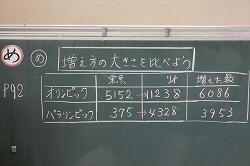 め め 増え方の大きさを比べよう
P92
東京 リオ 増えた数
オリンピック 5152→11238 6086
パラリンピック 375→4328 3953